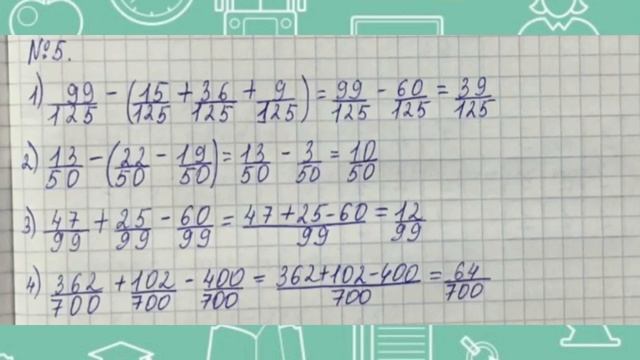 №5.
1) 99/125 - (15/125 + 36/125 + 9/125) = 99/125 - 60/125 = 39/125
2) 13/50 - (22/50 - 19/50) = 13/50 - 3/50 = 10/50
3) 47/99 + 25/99 - 60/99 = 47+25-60/99 = 12/99
4) 362/700 + 102/700 - 400/700 = 362+102-400/700 = 64/700